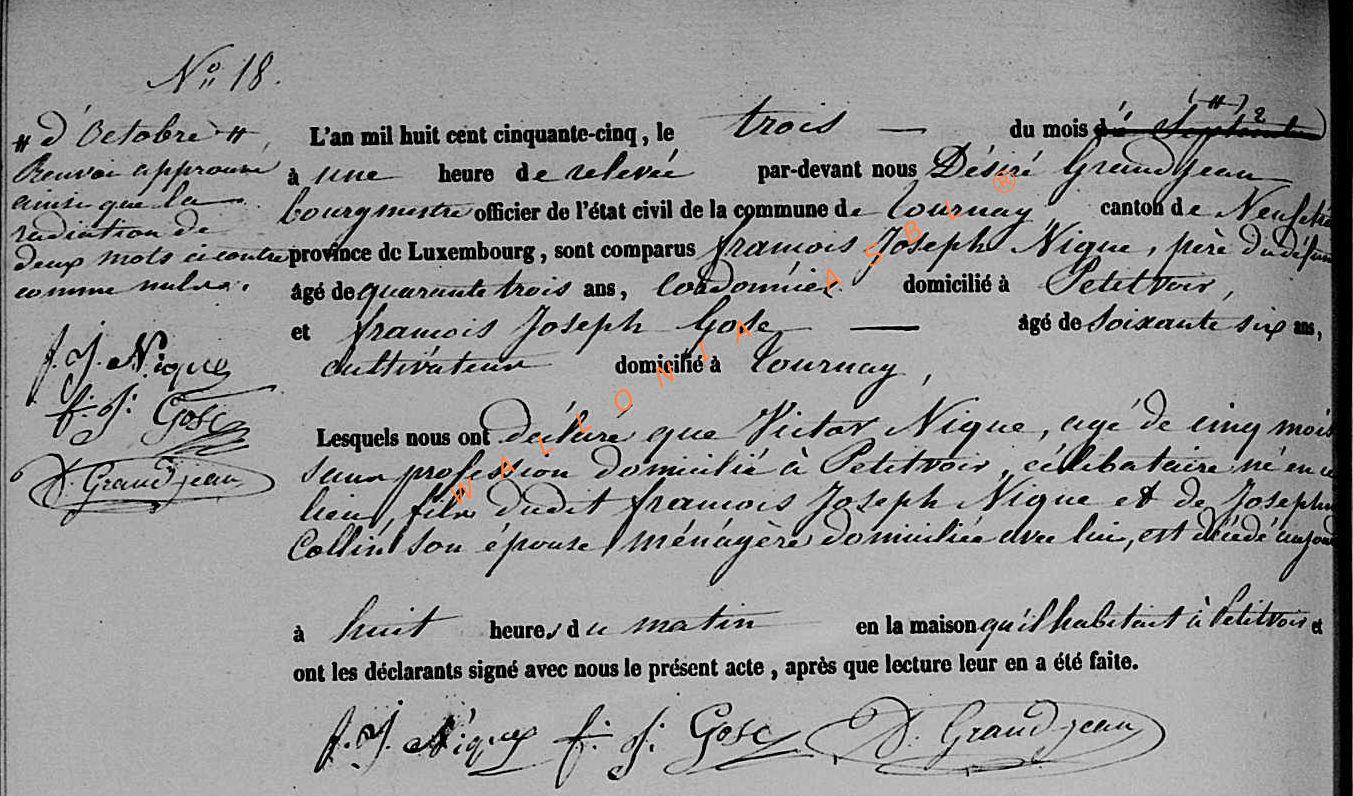 N° 18.
# d'Octobre #
Renvoi approuvé
ainsi que la
radiation de
deux mots ci contre
comme nuls.
f. J. Nique
f. J. Gosc
D. Grandjean
L'an mil huit cent cinquante-cinq, le trois — du mois de Septembre
à une heure de relevée par-devant nous Désiré Grandjean
bourgmestre officier de l'état civil de la commune de Tournay canton de
province de Luxembourg, sont comparus francois Joseph Nique, père du défunt
âgé de quarante trois ans, Cordonnier domicilié à Petitvoir,
et francois Joseph Gosc — âgé de soixante six ans,
cultivateur domicilié à Tournay,
Lesquels nous ont déclaré que Victor Nique, agé de cinq mois
sans profession domicilié à Petitvoir, célibataire né en ce
lieu, fils dudit francois Joseph Nique et de Joseph
Collin son épouse ménagère domiciliée avec lui, est décédé aujourd
à huit heures du matin en la maison qu'il habitait à Petitvoir et
ont les déclarants signé avec nous le présent acte, après que lecture leur en a été faite.
f. J. Nique f. J. Gosc D. Grandjean
WALLONIA ASBL ®